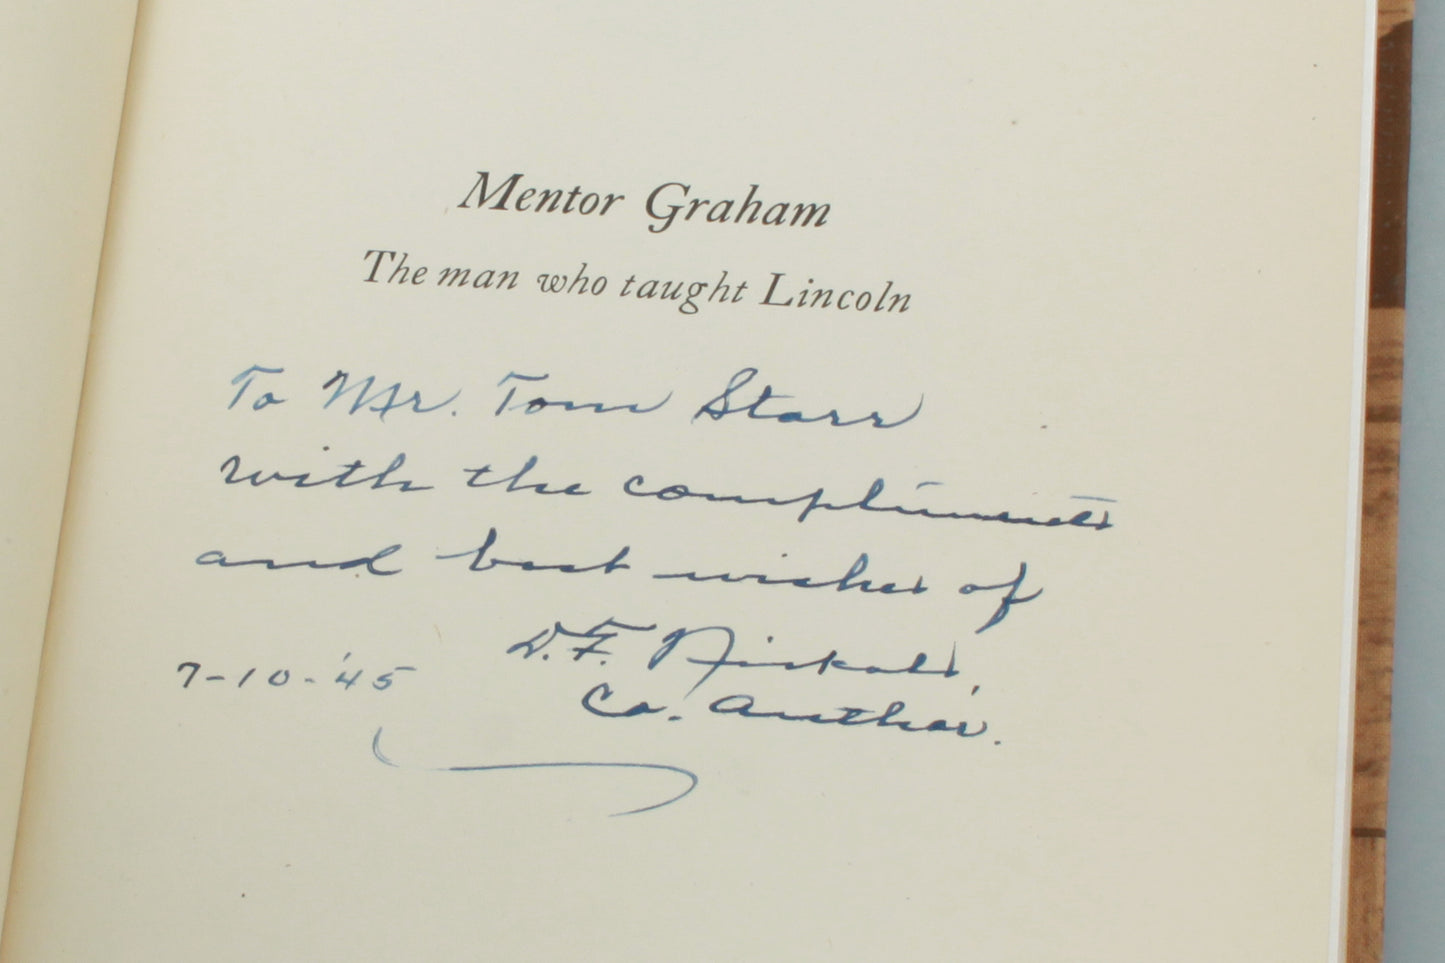 Mentor Graham
The man who taught Lincoln
To Mr. Tom Starr
with the compliments
and best wishes of
D. F. Nickols,
7-10-'45
Co. Author.